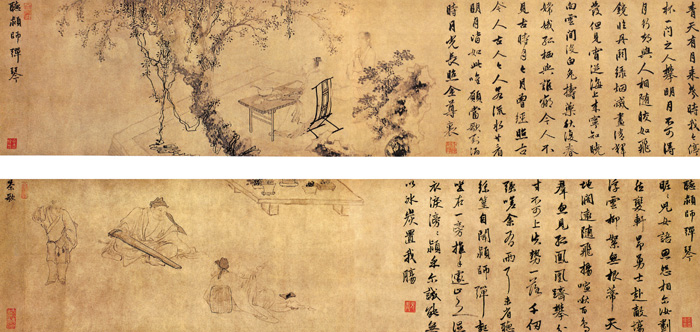 青天有月來幾時我今停
杯一問之人攀明月不可得
月行卻與人相隨皎如飛
鏡臨丹闕綠烟滅盡清輝
發但見宵從海上來寧知曉
向雲間沒白兔擣藥秋復春
嫦娥孤栖與誰鄰今人不
見古時月今月曾經照古
人古人今人若流水共看
明月皆如此唯願當歌對酒
時月光長照金尊裏
聽穎師彈琴
聽穎師彈琴
昵昵兒女語恩怨相爾汝劃
然變軒昂勇士赴敵場
浮雲柳絮無根蒂天
地闊遠隨飛揚喧啾百鳥
群忽見孤鳳凰躋攀分
寸不可上失勢一落千丈
強嗟余有兩耳未省聽
絲篁自聞穎師彈起
坐在一旁推手遽止之濕
衣淚滂滂穎乎爾誠能無
以冰炭置我腸
茶歌